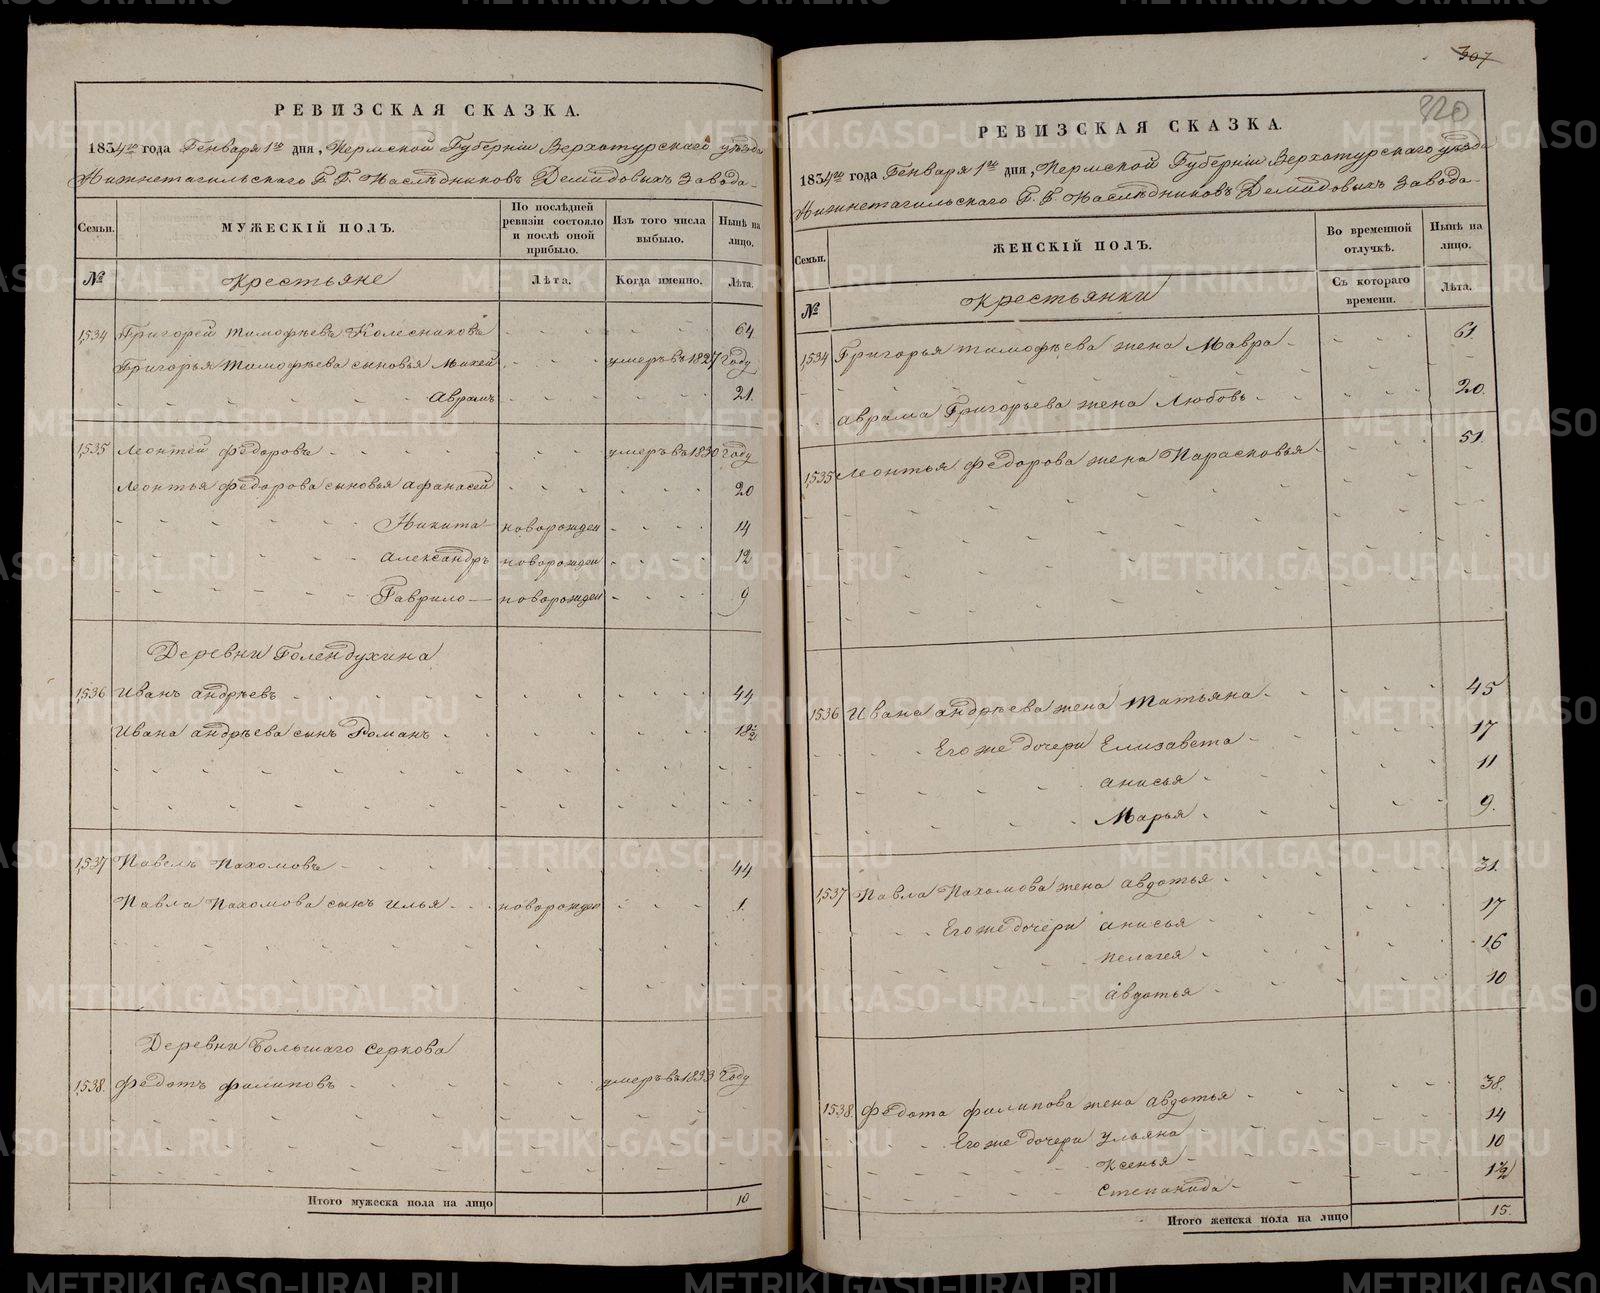 РЕВИЗСКАЯ СКАЗКА.
1834го года Генваря 1го дня, Пермской Губернiи Верхотурскаго уѣзда
Нижнетагильскаго Г. Г. Наслѣдниковъ Демидовыхъ Завода
Семьи. МУЖЕСКIЙ ПОЛЪ. По послѣдней ревизiи состояло и послѣ оной прибыло. Изъ того числа выбыло. Нынѣ на лицо.
№ Крестьяне Лѣта. Когда именно. Лѣта.
1534 Григорей Тимофѣевъ Колесниковъ 64
Григорья Тимофѣева сыновья Михей умеръ въ 1827 году
Аврамъ 21.
1535 Леонтей Федоровъ умеръ въ 1830 году
Леонтья Федорова сыновья Афанасей 20
Никита новорожден 14
Александръ новорожден 12
Гаврило новорожден 9
Деревни Голендухина
1536 Иванъ Андрѣевъ 44
Ивана Андрѣева сынъ Романъ 18½
1537 Павелъ Пахомовъ 44
Павла Пахомова сынъ Илья новорожден 1.
Деревни Большаго Серкова
1538. Федотъ Филиповъ умеръ въ 1833 году
Итого мужеска пола на лицо 10
307
320
РЕВИЗСКАЯ СКАЗКА.
1834го года Генваря 1го дня, Пермской Губернiи Верхотурскаго уѣзда
Нижнетагильскаго Г. Г. Наслѣдниковъ Демидовыхъ Завода
Семьи. ЖЕНСКIЙ ПОЛЪ. Во временной отлучкѣ. Нынѣ на лицо.
№ Крестьянки Съ котораго времени. Лѣта.
1534 Григорья Тимофѣева жена Мавра 61.
Аврама Григорьева жена Любовь 20.
1535 Леонтья Федорова жена Парасковья 51.
1536 Ивана Андрѣева жена Татьяна 45
Его же дочери Елизавета 17
Анисья 11
Марья 9.
1537 Павла Пахомова жена Авдотья 31.
Его же дочери Анисья 17
Пелагея 16
Авдотья 10
1538. Федота Филипова жена Авдотья 38.
Его же дочери Ульяна 14
Ксенья 10
Степанида 1½
Итого женска пола на лицо 15.
METRIKI.GASO-URAL.RU